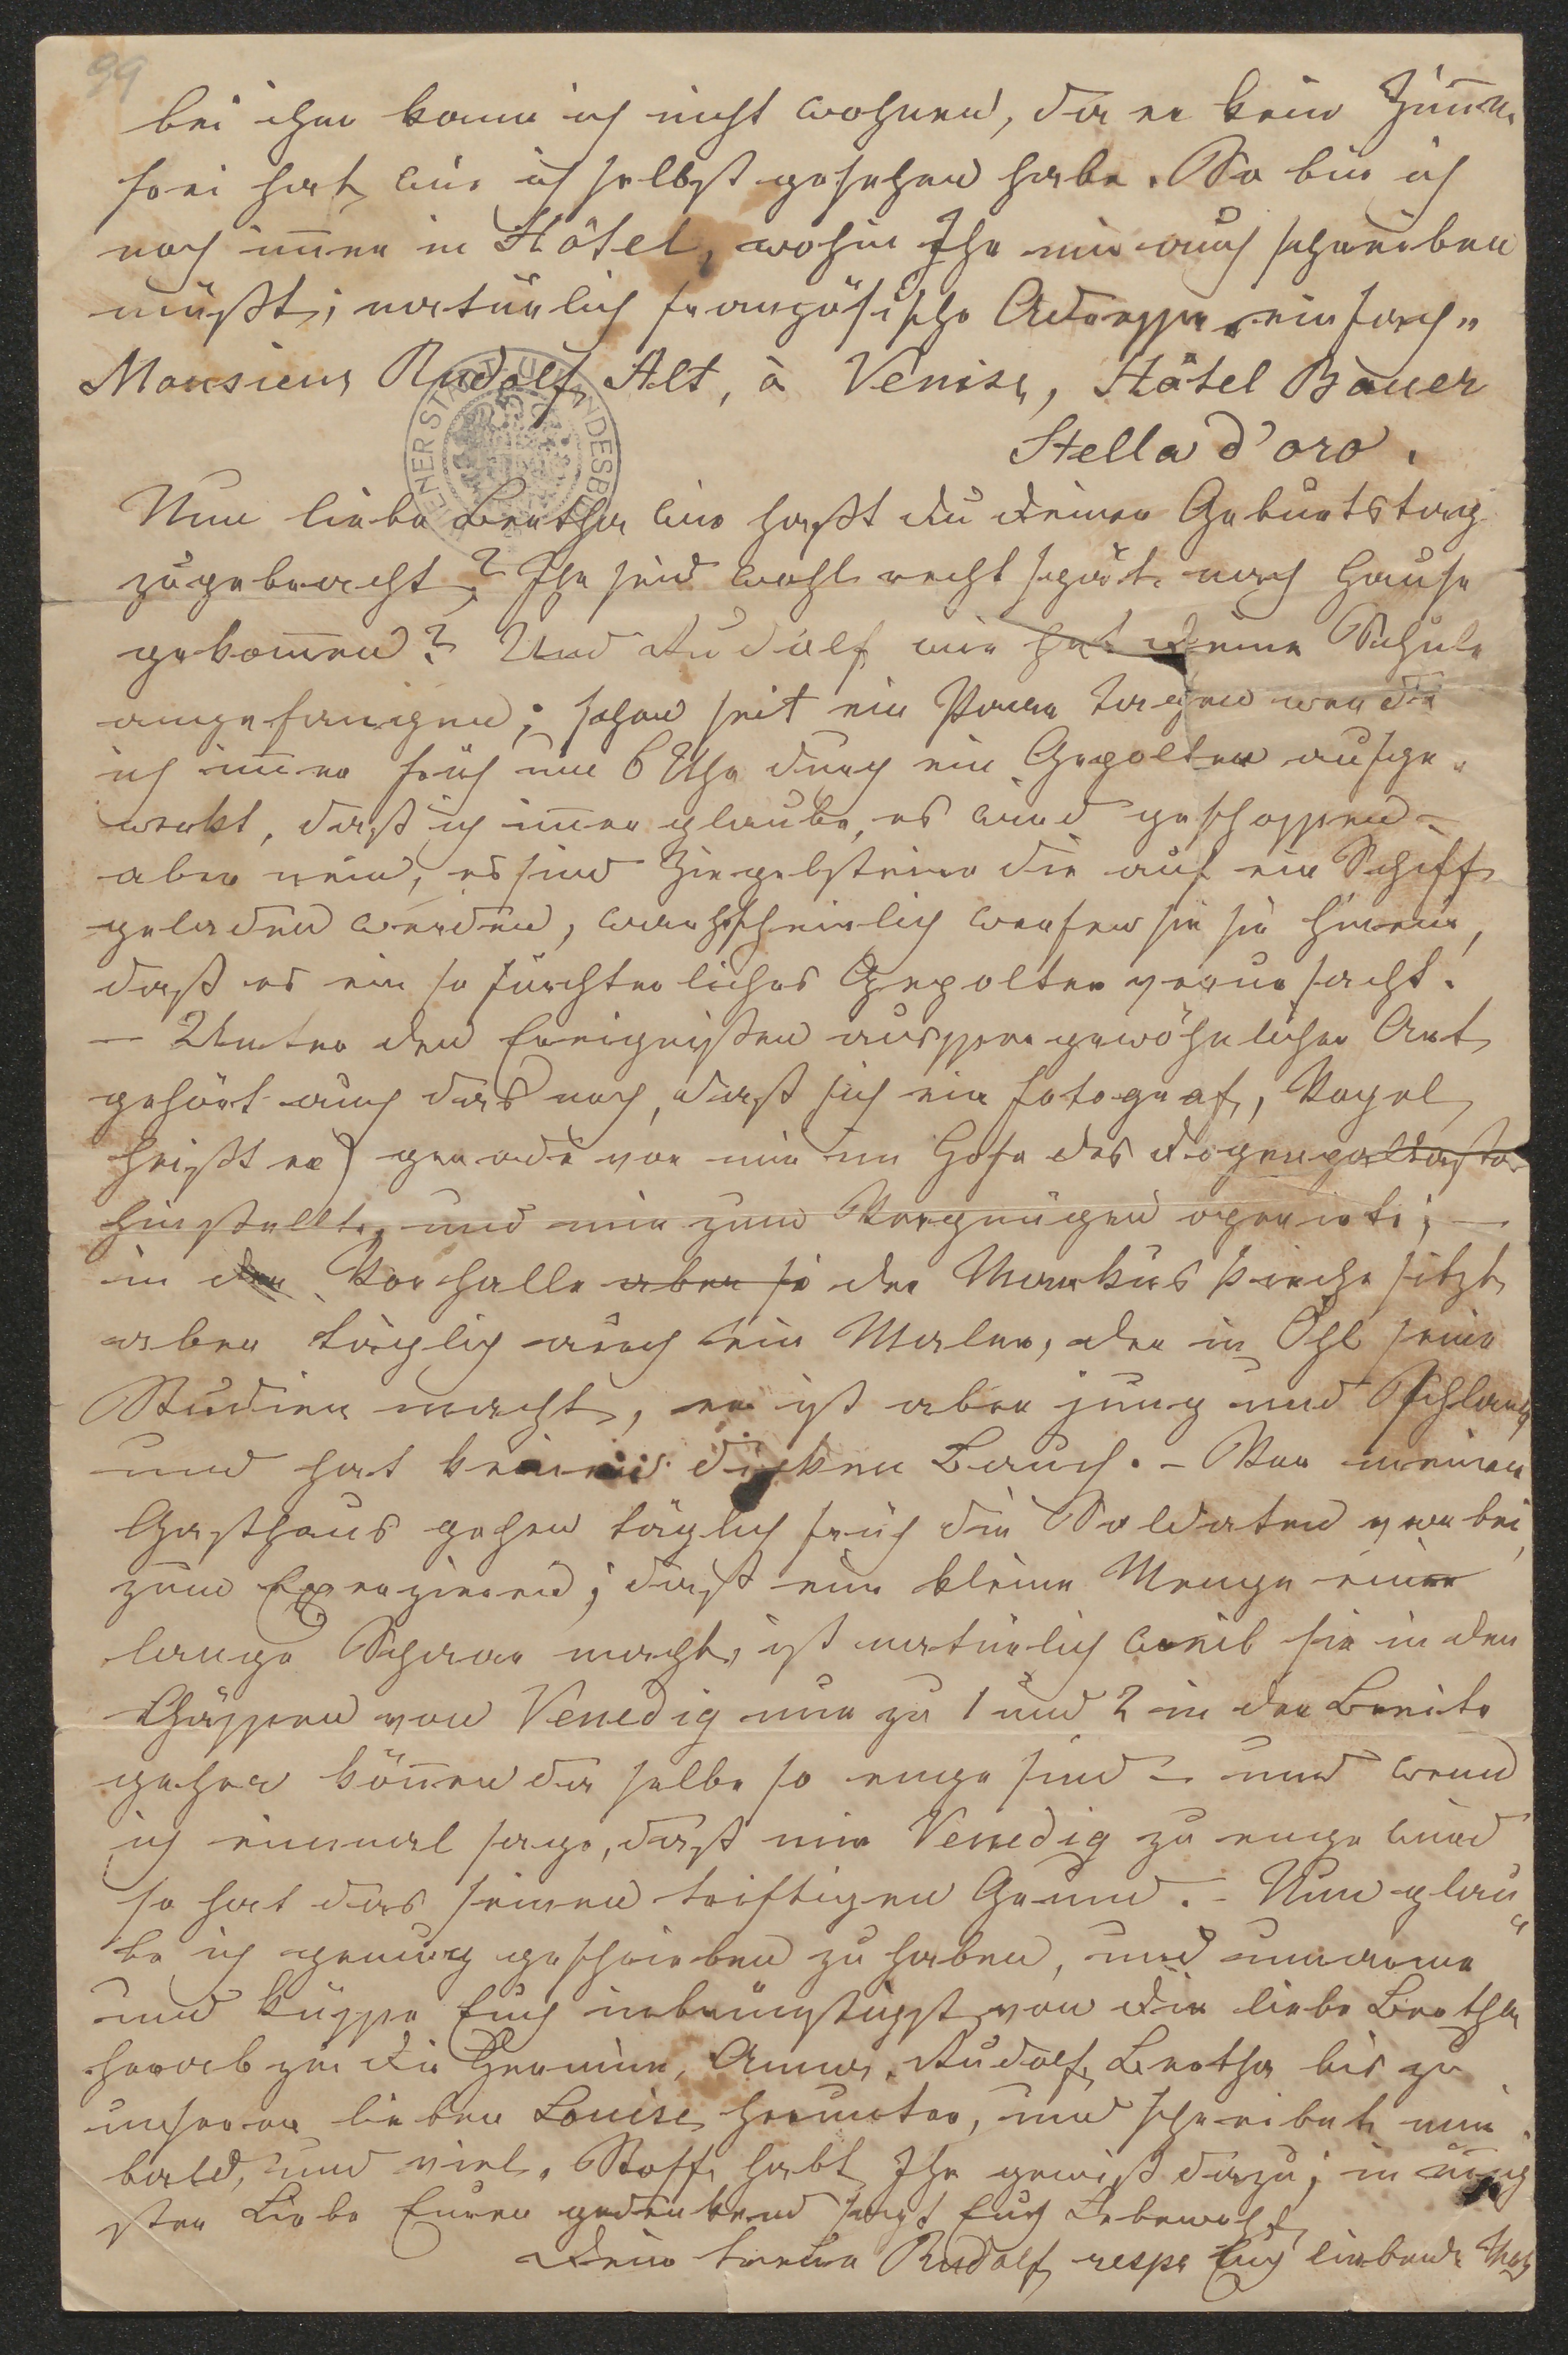 99
bei ihm kann ich nicht wohnen, da er kein Zim̅er
frei hat, wie ich selbst gesehen habe. So bin ich
noch im̅er im Hôtel, wohin Ihr mir auch schreiben
müßt; natürlich französische Adresse einfach „
Monsieur Rudolf Alt, à Venise, Hôtel Bauer
Stella d'oro.
Nun liebe Bertha wie hast du deinen Geburtstag
zugebracht? Ihr seid wohl recht spät nach Hause
gekom̅en? Und Rudolf wie hat deine Schule
angefangen; schon seit ein Paar Tagen werde
ich im̅er früh um 6 Uhr durch ein Gepolter aufge„
wekt, daß ich im̅er glaube, es wird geschossen –
aber nein, es sind Ziegelsteine die auf ein Schiff
geladen werden, warhscheinlich werfen sie sie hinein,
daß es ein so fürchterliches Gepolter verursacht.
– Unter den Ereignißen aussergewöhnlicher Art
gehört auch das noch, daß sich ein Fotograf, Vogel
heißt er) gerade vor mir im Hofe des Dogenpallastes
hinstellte, und mir zum Vergnügen operirte; –
in der Vorhalle aber si der Markus kirche sitzt
aber täglich auch ein Maler, der in Öhl seine
Studien macht, er ist aber jung und Schlank
und hat keinen dicken Bauch. – Vor meinem
Gasthaus gehen täglich früh die Soldaten vorbei,
zum Exerzieren; daß eine kleine Menge eine
lange Schaar macht, ist natürlich weil sie in den
Gässen von Venedig nur zu 1 und 2 in der Breite
gehen kön̅en da selbe so enge sind – und wenn
ich einmal sage, daß mir Venedig zu enge wird
so hat das seinen triftigen Grund. – Nun glau„
be ich genug geschrieben zu haben, und umarme
und küsse Euch inbrünstigst, von dir liebe Bertha
herab zu die Hermine, Anna, Rudolf, Bertha bis zu
unserer lieben Louise herunter, und schreibet mir
bald, und viel, Stoff habt Ihr gewiß dazu; in in̅ig
ster Liebe Eurer gedenkend sagt Euch Lebewohl
Dein treuer Rudolf respe Euch liebender